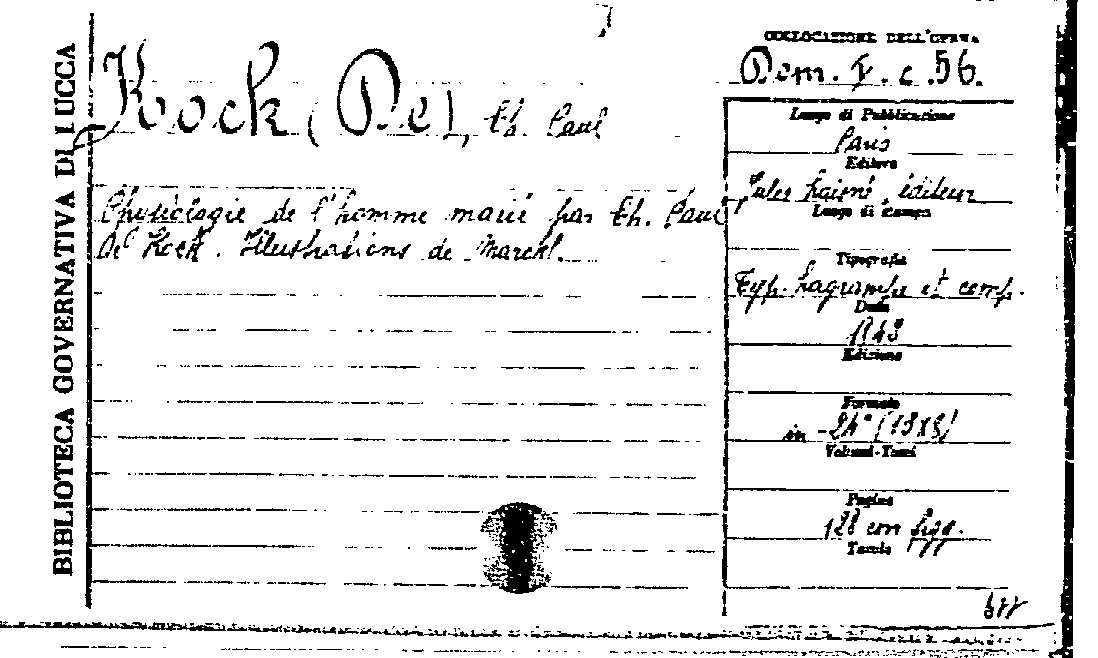 BIBLIOTECA GOVERNATIVA DI LUCCA
Kock (De), Ch. Paul
Physiologie de l'homme marié par Ch. Paul
de Kock. Illustrations de Marckl.
COLLOCAZIONE DELL'OPERA
Dom. F. c. 56.
Luogo di Pubblicazione
Paris
Editore
Jules Laisné, éditeur
Luogo di stampa
Tipografia
Typ. Lagrampe et comp.
Data
1843
Edizione
Formato
in -24° (13x8)
Volumi-Tomi
Pagine
128 con figg.
Tavole